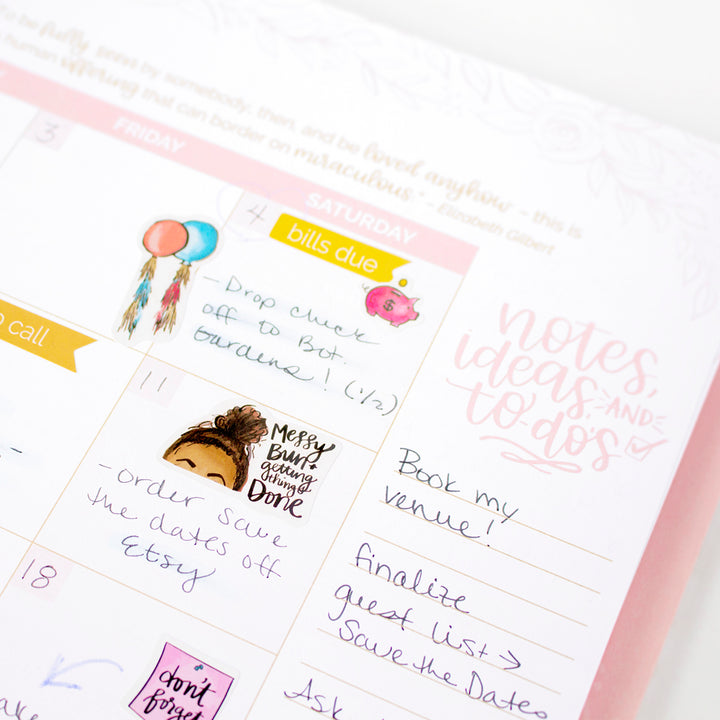 be fully seen by somebody, then, and be loved anyhow - this is
human offering that can border on miraculous." - Elizabeth Gilbert
FRIDAY
SATURDAY
3
4
bills due
$
- Drop check
off to Bot.
Gardens! (1/2)
call
11
Messy
Bun +
getting
things
Done
- order save
the dates off
Etsy
18
don't
forget
notes,
ideas, AND
to-do's
Book my
venue!
finalize
guest list →
Save the Dates
Ask